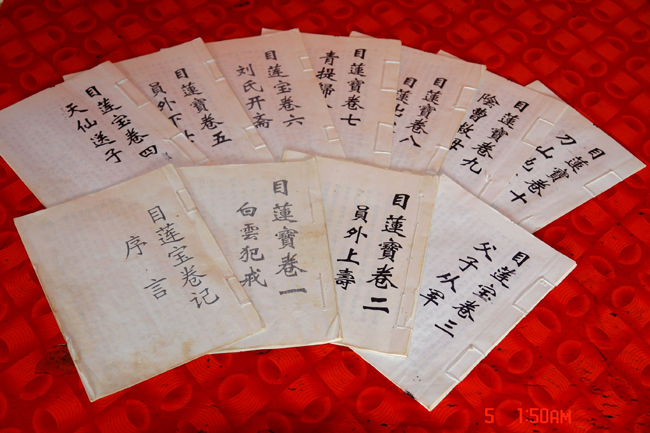 目莲宝卷记
序言
目蓮寶卷一
白雲犯戒
目蓮寶卷二
員外上壽
目莲宝卷三
父子从军
目莲宝卷四
天仙送子
目莲寶卷五
員外下
目莲宝卷六
刘氏开斋
目莲寶卷七
青提歸
目莲寶卷八
目蓮寶卷九
陰曹救母
目蓮寶卷十
刀山
5 1:50AM